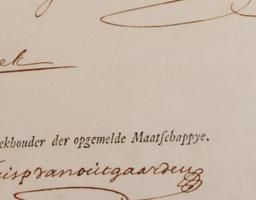 ek
ekhouder der opgemelde Maatschappye.
uispvanoutgaarden